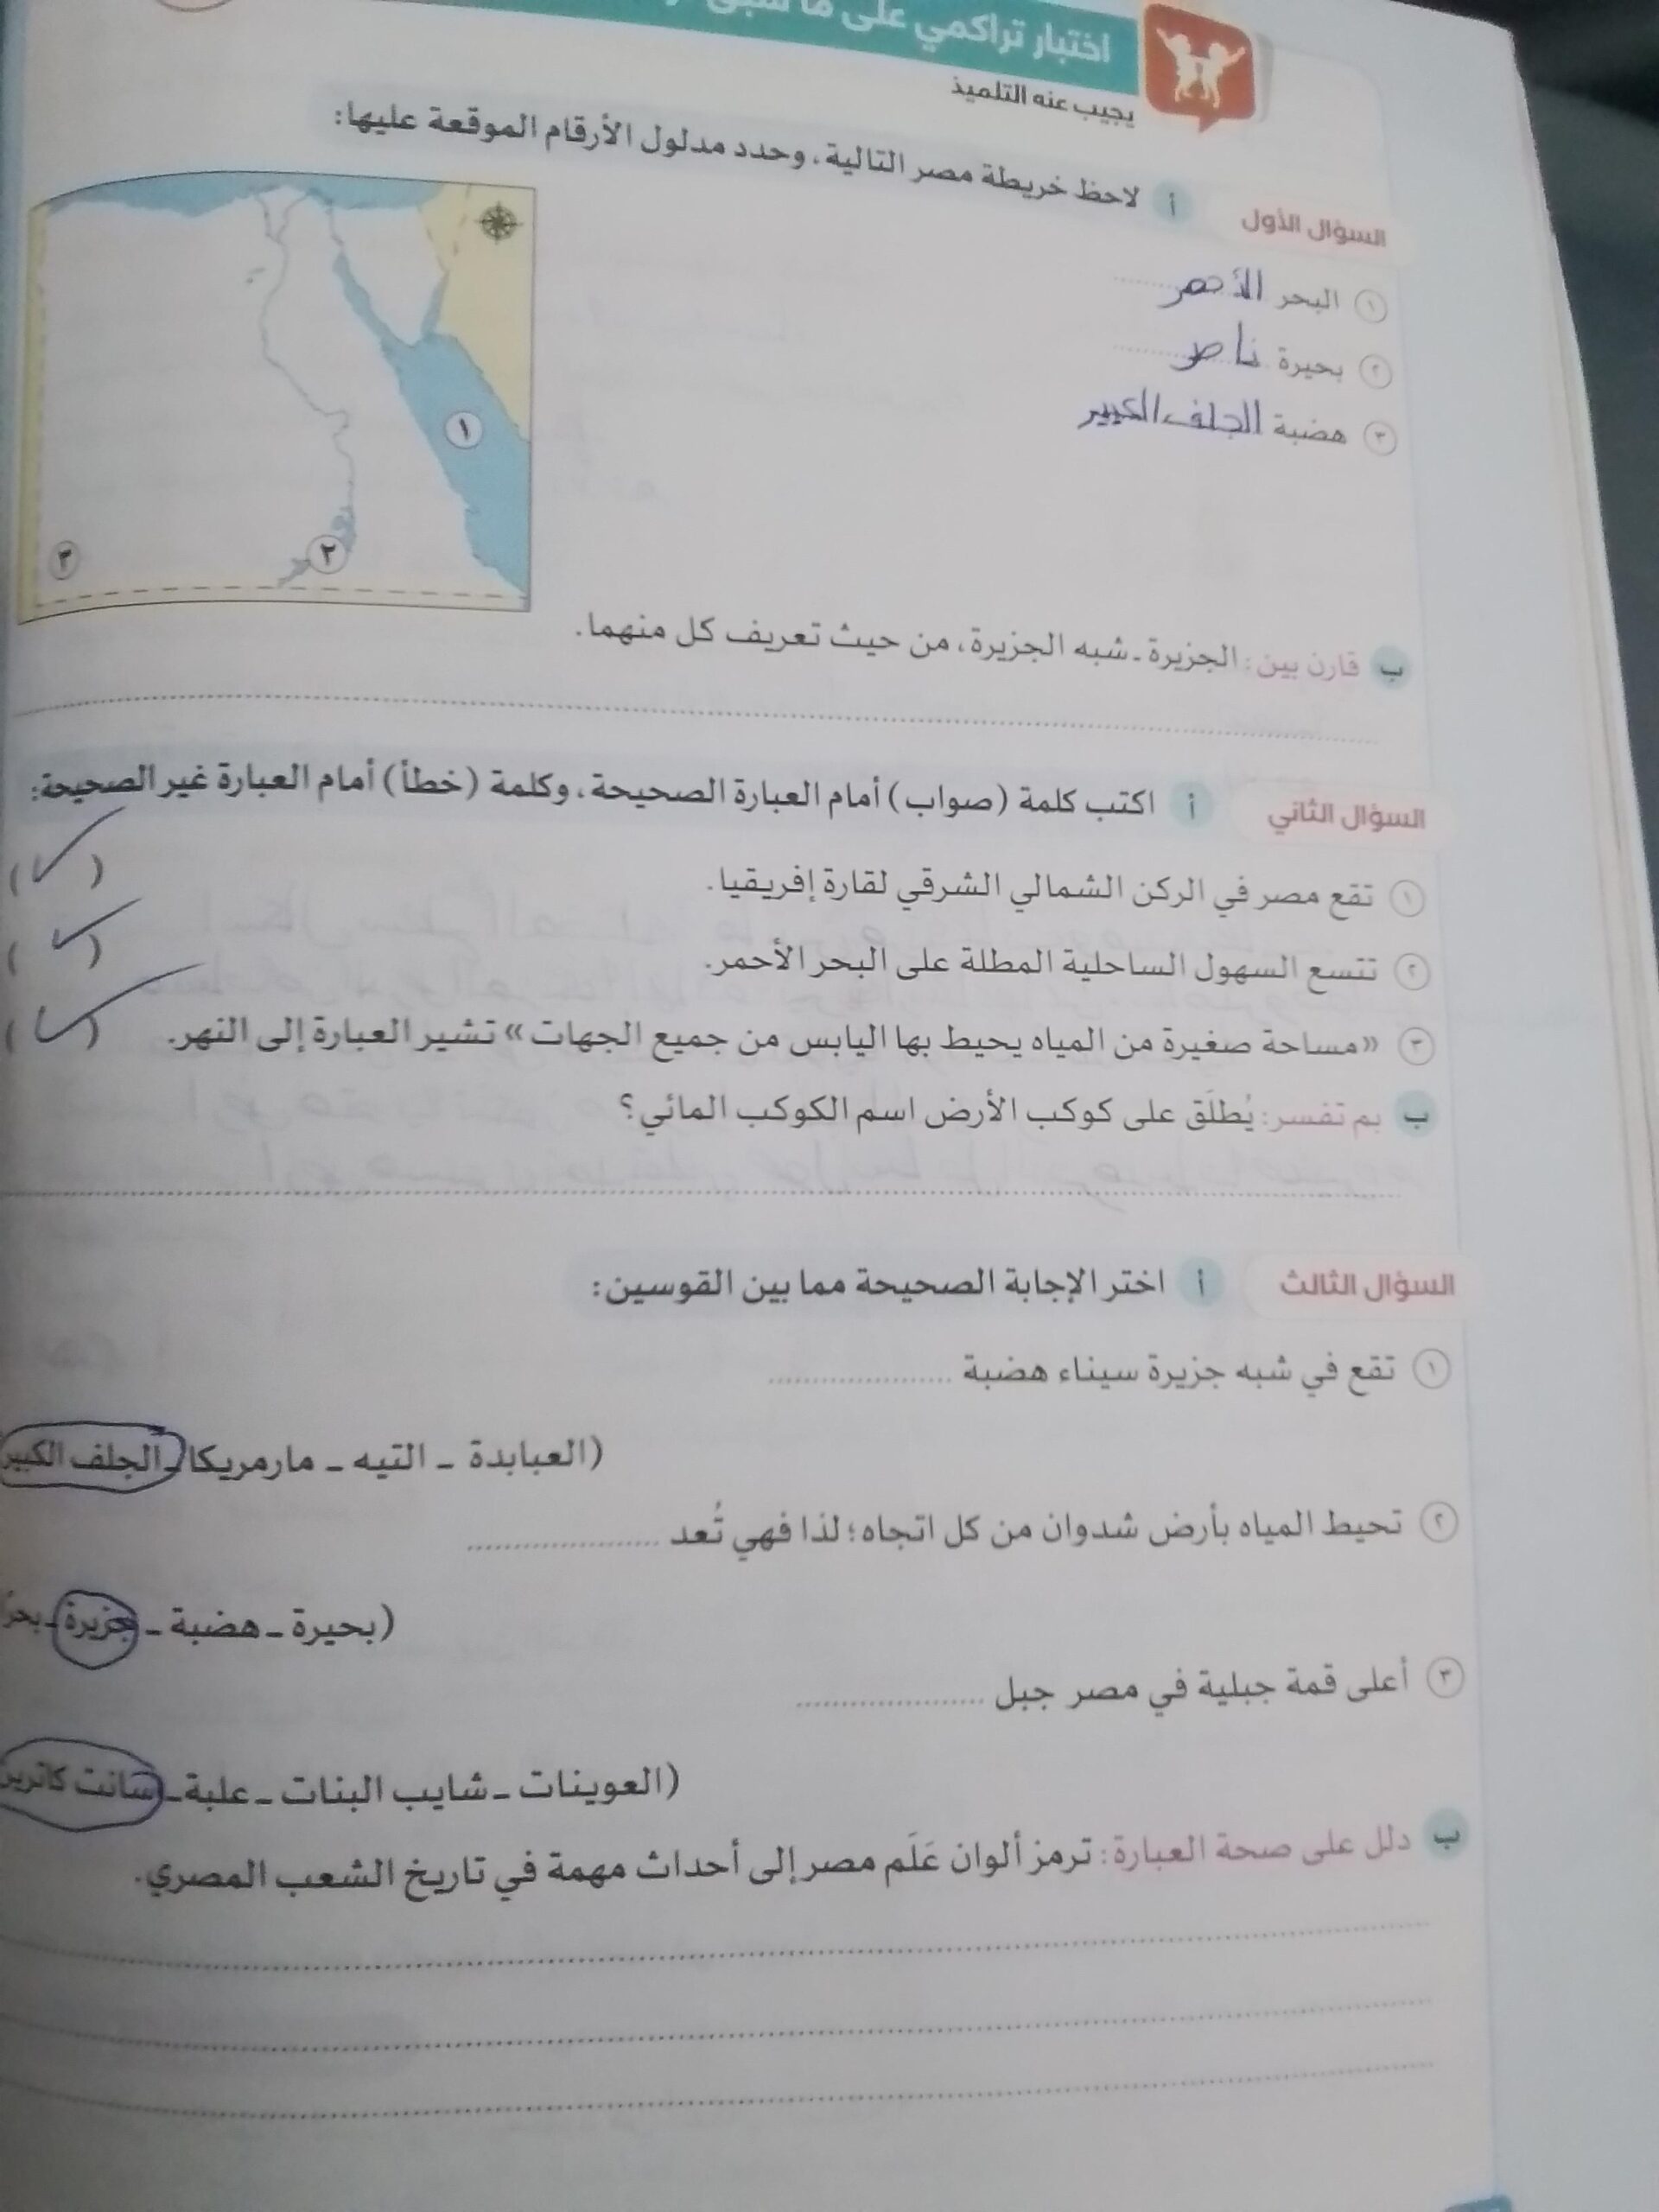 اختبار تراكمي على ما سبق
يجيب عنه التلميذ
السؤال الأول
أ لاحظ خريطة مصر التالية، وحدد مدلول الأرقام الموقعة عليها:
١ البحر الأحمر
٢ بحيرة ناصر
٣ هضبة الجلف الكبير
١
٢
٣
ب قارن بين: الجزيرة - شبه الجزيرة، من حيث تعريف كل منهما.
السؤال الثاني
أ اكتب كلمة (صواب) أمام العبارة الصحيحة، وكلمة (خطأ) أمام العبارة غير الصحيحة:
١ تقع مصر في الركن الشمالي الشرقي لقارة إفريقيا. (✓)
٢ تتسع السهول الساحلية المطلة على البحر الأحمر. (✓)
٣ «مساحة صغيرة من المياه يحيط بها اليابس من جميع الجهات» تشير العبارة إلى النهر. (✓)
ب بم تفسر: يُطلَق على كوكب الأرض اسم الكوكب المائي؟
السؤال الثالث
أ اختر الإجابة الصحيحة مما بين القوسين:
١ تقع في شبه جزيرة سيناء هضبة ....................
(العبابدة - التيه - مارمريكا - الجلف الكبير
٢ تحيط المياه بأرض شدوان من كل اتجاه؛ لذا فهي تُعد ....................
(بحيرة - هضبة - جزيرة - بحر
٣ أعلى قمة جبلية في مصر جبل ....................
(العوينات - شايب البنات - علبة - سانت كاترين
ب دلل على صحة العبارة: ترمز ألوان عَلَم مصر إلى أحداث مهمة في تاريخ الشعب المصري.